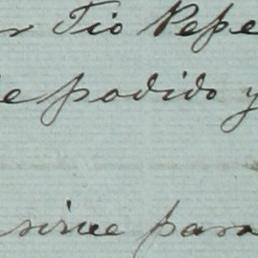 r Tio Pepe
e podido y
sirve para